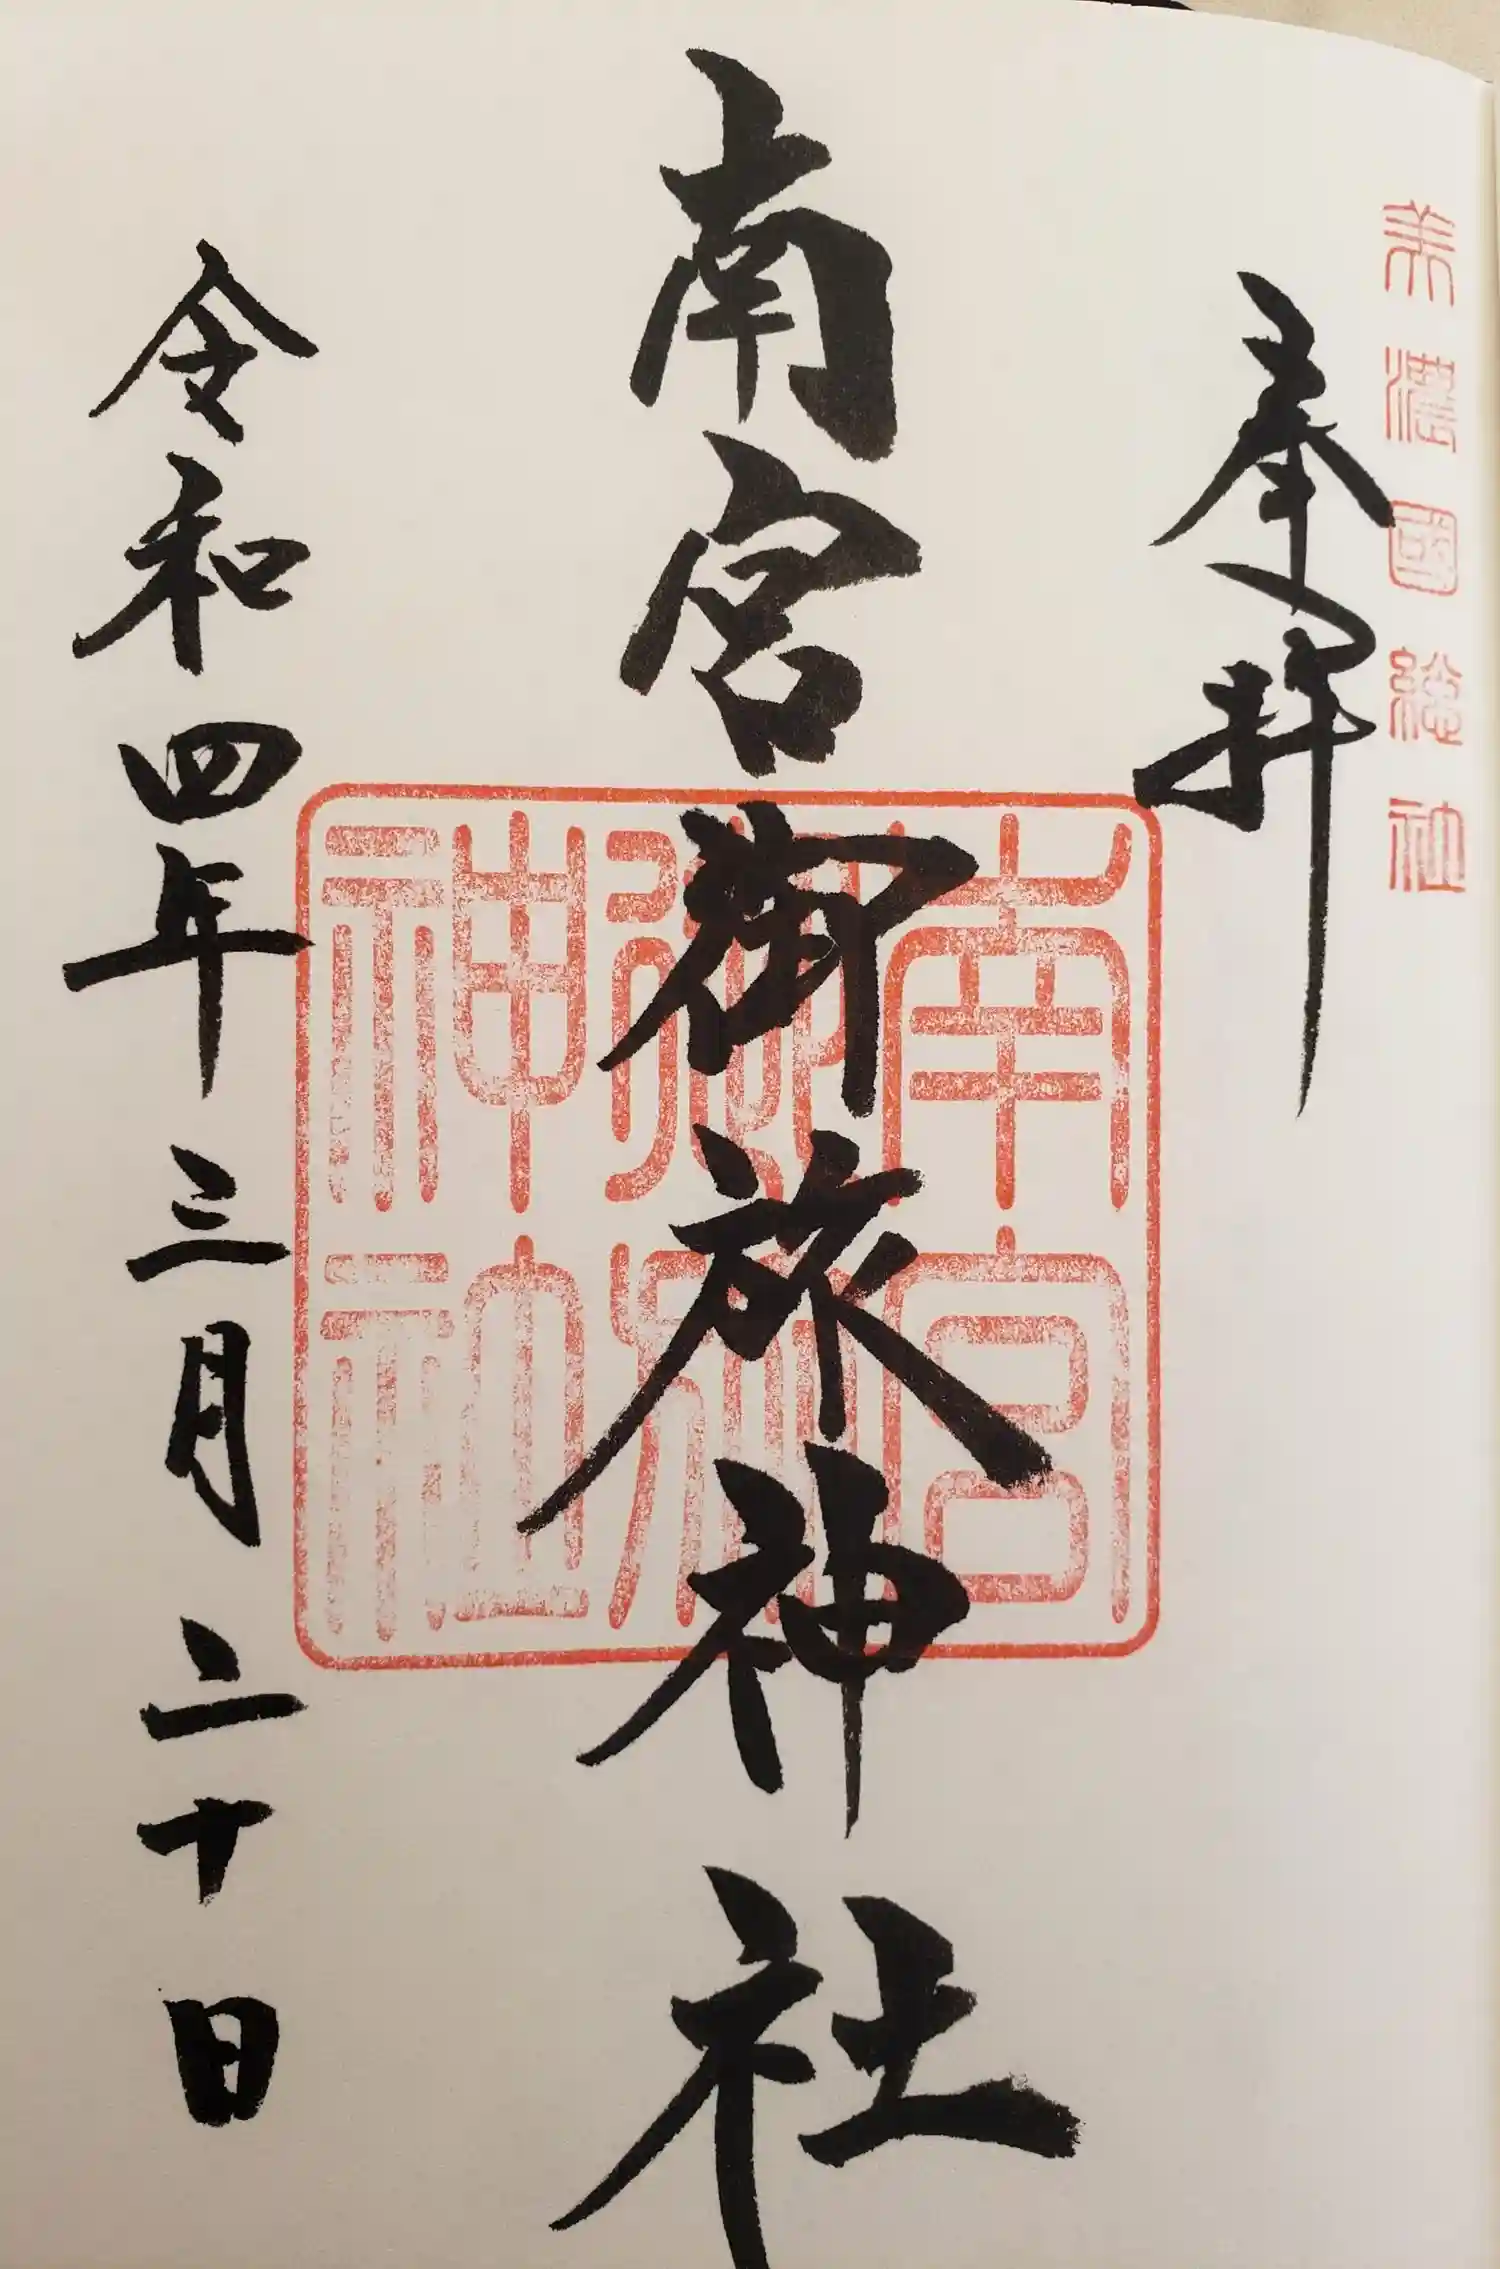 美濃國総社
奉拝
南宮御旅神社
南宮
御旅
神社
令和四年三月二十日